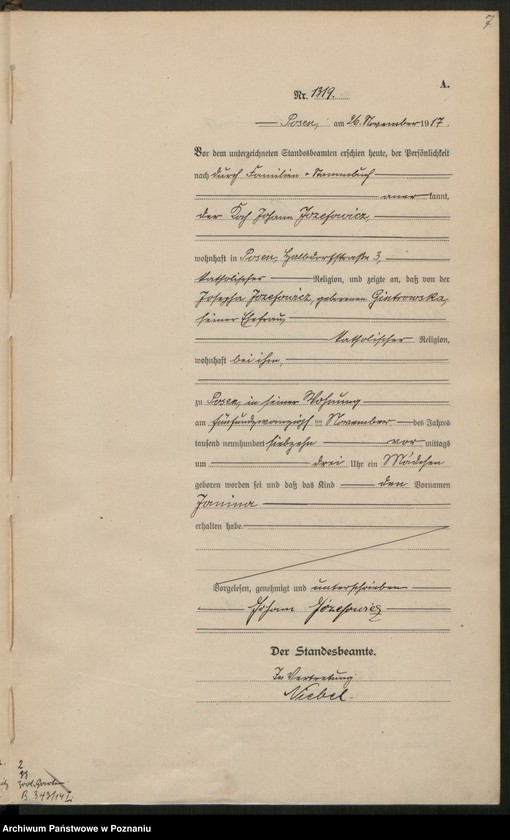 7
A.
Nr. 1319.
Posen, am 26. November 1917.
Vor dem unterzeichneten Standesbeamten erschien heute, der Persönlichkeit
nach durch Familien-Stammbuch
anerkannt,
der Koch Johann Jozefowicz,
wohnhaft in Posen, Halbdorfstraße 3,
katholischer Religion, und zeigte an, daß von der
Josepha Jozefowicz, geborenen Gintrowska,
seiner Ehefrau,
katholischer Religion,
wohnhaft bei ihm,
zu Posen, in seiner Wohnung
am fünfundzwanzigsten November des Jahres
tausend neunhundert siebzehn vormittags
um drei Uhr ein Mädchen
geboren worden sei und daß das Kind den Vornamen
Janina
erhalten habe.
Vorgelesen, genehmigt und unterschrieben
Johann Józefowicz
Der Standesbeamte.
In Vertretung
Niebel.
2
B. 343/14 I
Archiwum Państwowe w Poznaniu